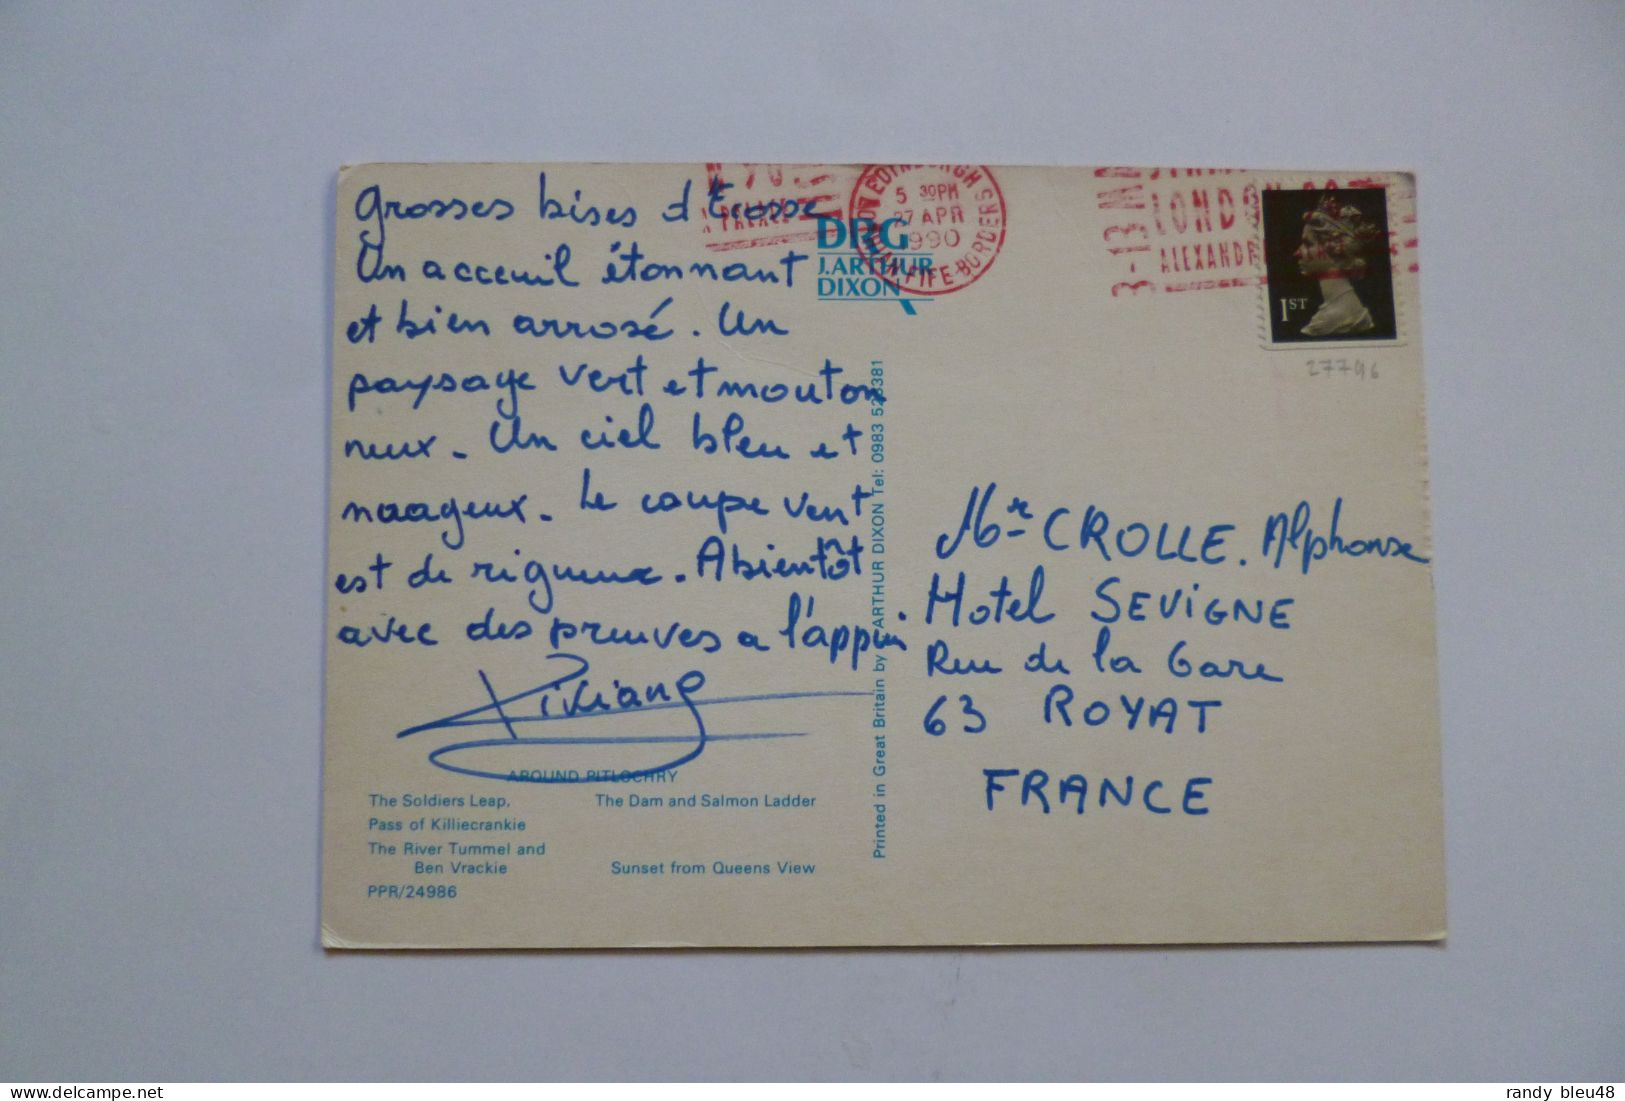 Grosses bises d'Ecosse
Un acceuil étonnant
et bien arrosé. Un
paysage vert et mouton
neux. Un ciel bleu et
naageux. Le coupe vent
est de rigueur. A bientôt
avec des preuves a l'appui
AROUND PITLOCHRY
The Soldiers Leap,
Pass of Killiecrankie
The Dam and Salmon Ladder
The River Tummel and
Ben Vrackie
Sunset from Queens View
PPR/24986
DRG
J.ARTHUR
DIXON
Printed in Great Britain by J. ARTHUR DIXON Tel: 0983 523381
EDINBURGH
5 30PM
27 APR
1990
FIFE-BORDERS
PALACE
3-13 M
LONDON 90
ALEXANDR
1ST
27796
Mr CROLLE. Alphonse
Hotel SEVIGNE
Rue de la Gare
63 ROYAT
FRANCE
randy_bleu48